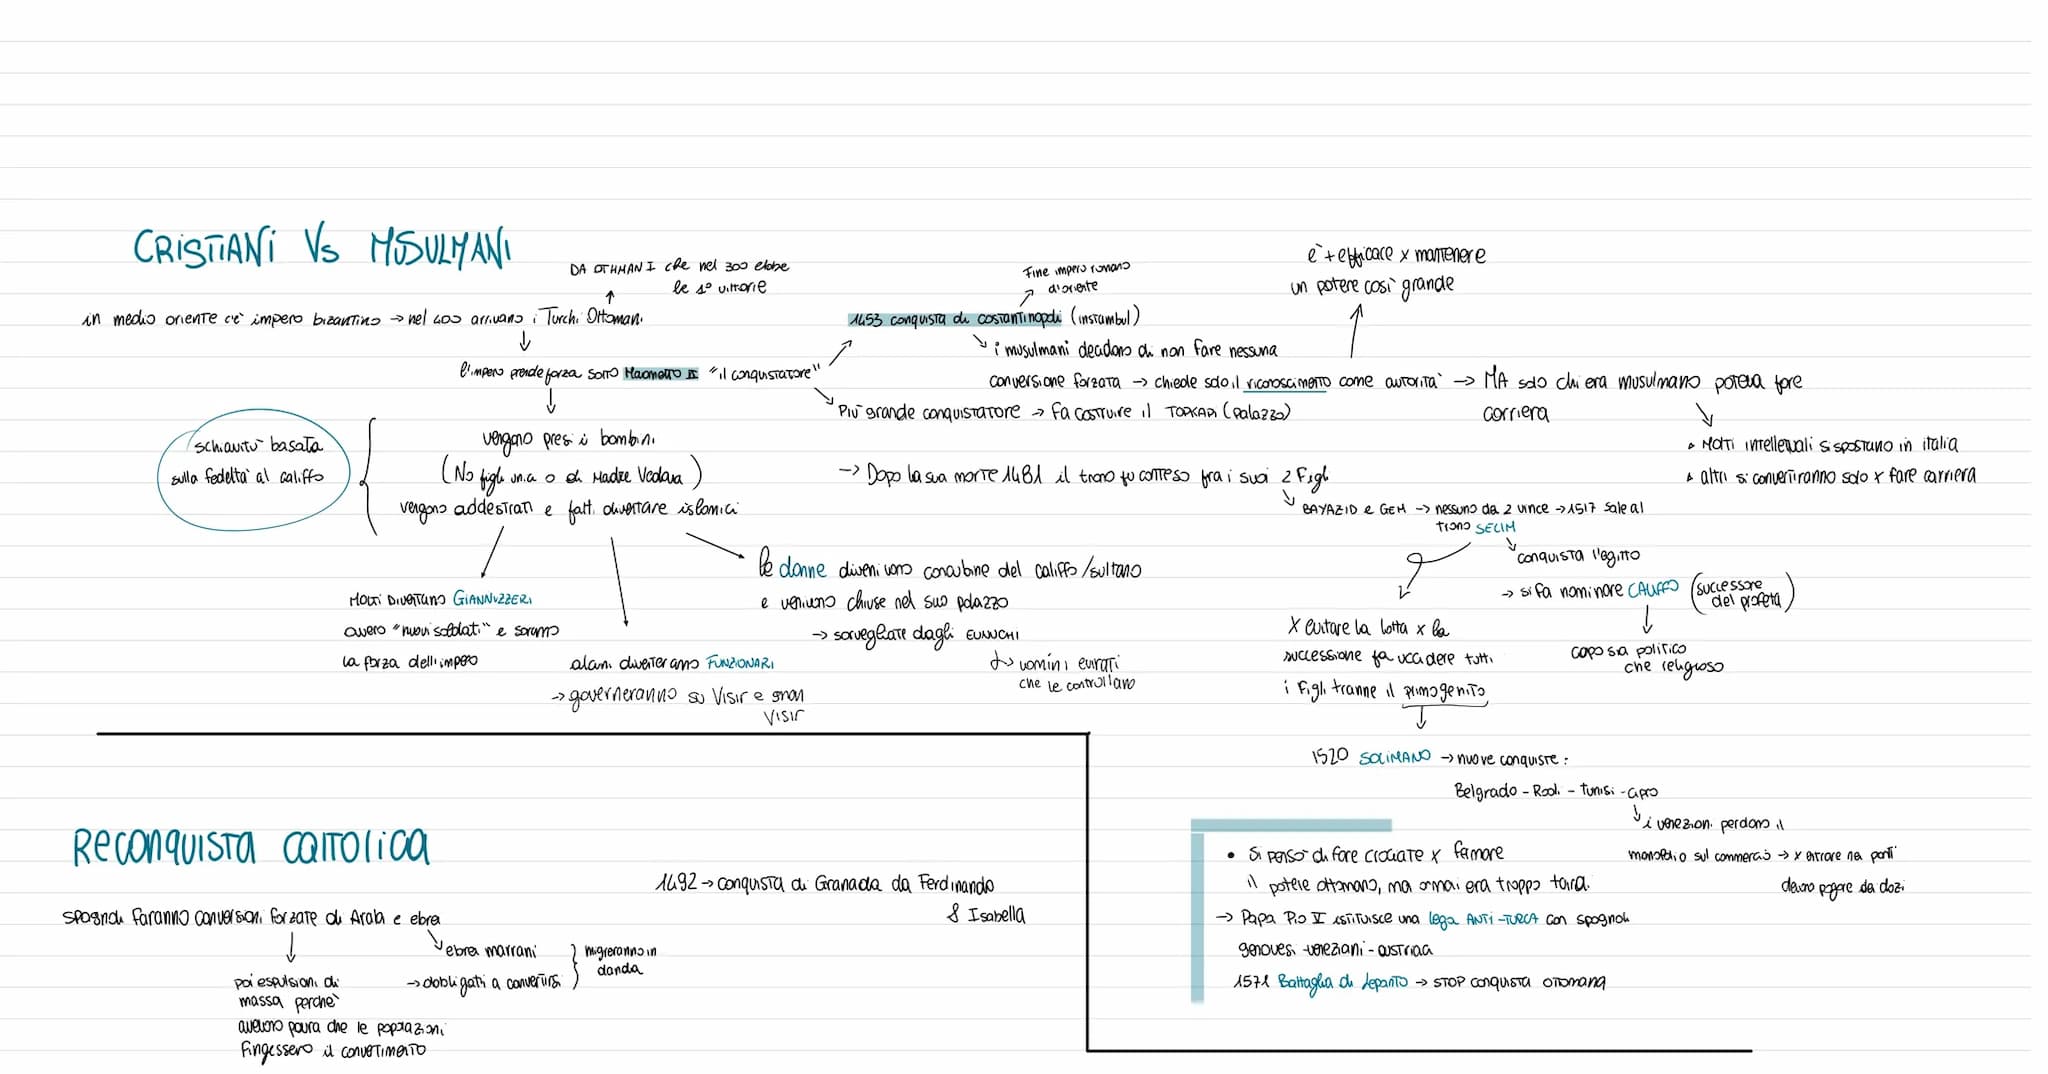 CRISTIANI Vs MUSULMANI
DA OTHMAN I che nel 300 ebbe
le 1° vittorie
in medio oriente c'è impero bizantino → nel 400 arrivano i Turchi Ottomani
↓
l'impero prende forza sotto Maometto II "il conquistatore"
Fine impero romano
d'oriente
1453 conquista di costantinopoli (instambul)
i musulmani decidono di non fare nessuna
conversione forzata → chiede solo il riconoscimento come autorità → MA solo chi era musulmano poteva fare
carriera
è + efficace x mantenere
un potere così grande
• Molti intellettuali si spostano in italia
• altri si convertiranno solo x fare carriera
Più grande conquistatore → Fa costruire il TOPKAPI (palazzo)
→ Dopo la sua morte 1481 il trono fu conteso fra i suoi 2 Figli
BAYAZID e GEM → nessuno dei 2 vince → 1517 sale al
trono SELIM
conquista l'egitto
→ si fa nominare CALIFFO (successore
del profeta)
↓
capo sia politico
che religioso
X evitare la lotta x la
successione fa uccidere tutti
i Figli tranne il primogenito
↓
1520 SOLIMANO → nuove conquiste:
Belgrado - Rodi - Tunisi - cipro
i veneziani perdono il
monopolio sul commercio → x entrare nei porti
devono pagare dei dazi
schiavitù basata
sulla fedeltà al califfo
vengono presi i bambini
(No figli unici o di Madre Vedova)
vengono addestrati e fatti diventare islamici
Molti diventano GIANNIZZERI
ovvero "nuovi soldati" e saranno
la forza dell'impero
alcuni diventeranno FUNZIONARI
→ governeranno su Visir e gran
Visir
le donne divenivano concubine del califfo/sultano
e venivano chiuse nel suo palazzo
→ sorvegliate dagli EUNUCHI
↳ uomini evirati
che le controllano
• Si pensò di fare crociate x fermare
il potere ottomano, ma ormai era troppo tardi.
→ Papa Pio V istituisce una lega ANTI-TURCA con spagnoli
genovesi - veneziani - austriaci
1571 Battaglia di Lepanto → STOP conquista ottomana
Reconquista cattolica
1492 → conquista di Granada da Ferdinando
& Isabella
spagnoli faranno conversioni forzate di Arabi e ebrei
↓
poi espulsioni di
massa perchè
avevano paura che le popolazioni
fingessero il convertimento
ebrei marrani
→ obbligati a convertirsi
migreranno in
olanda